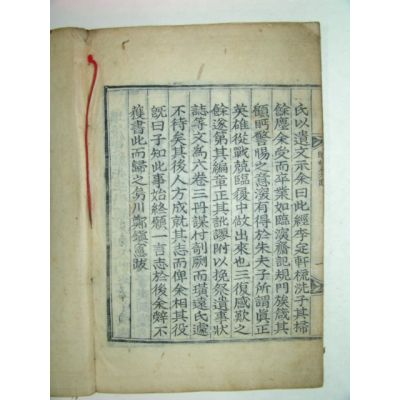 氏以遺文示余曰此經李定軒梳洗子其掃
餘塵余受而卒業如臨淵齋記規門族箴其
顧眄警賜之意深有得於朱夫子所謂眞正
英雄從戰兢臨履中做出來也三復感歎之
餘遂第其編章正其訛謬附以挽祭遺事狀
誌等文爲六卷三冊謀付剞劂而璜遠氏遽
不待矣其後人方成就其志而俾余相其役
旣曰子知此事始終願一言志於後余辭不
獲書此而歸之烏川鄭鎭憲跋